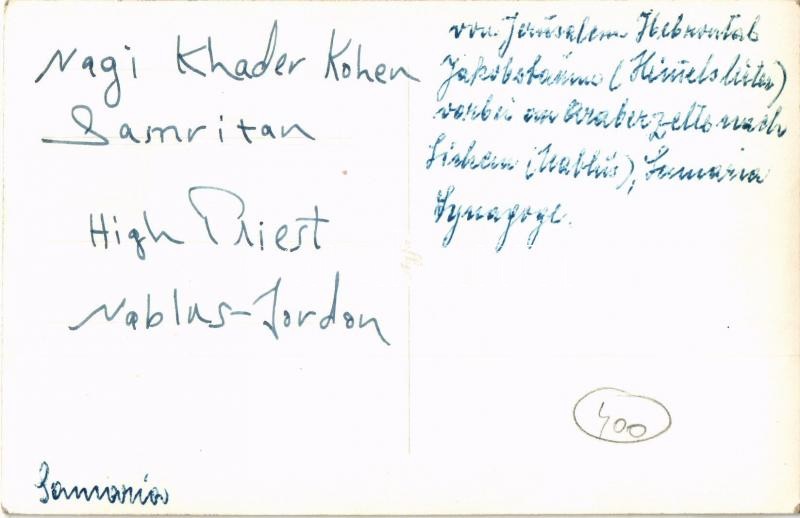 Nagi Khader Kohen
Samritan
High Priest
Nablus-Jordon
Samaria
von Jerusalem Hebrontal
vorbei an Araberzelte nach
Sichem (Nablus), Samaria
Synagoge.
400